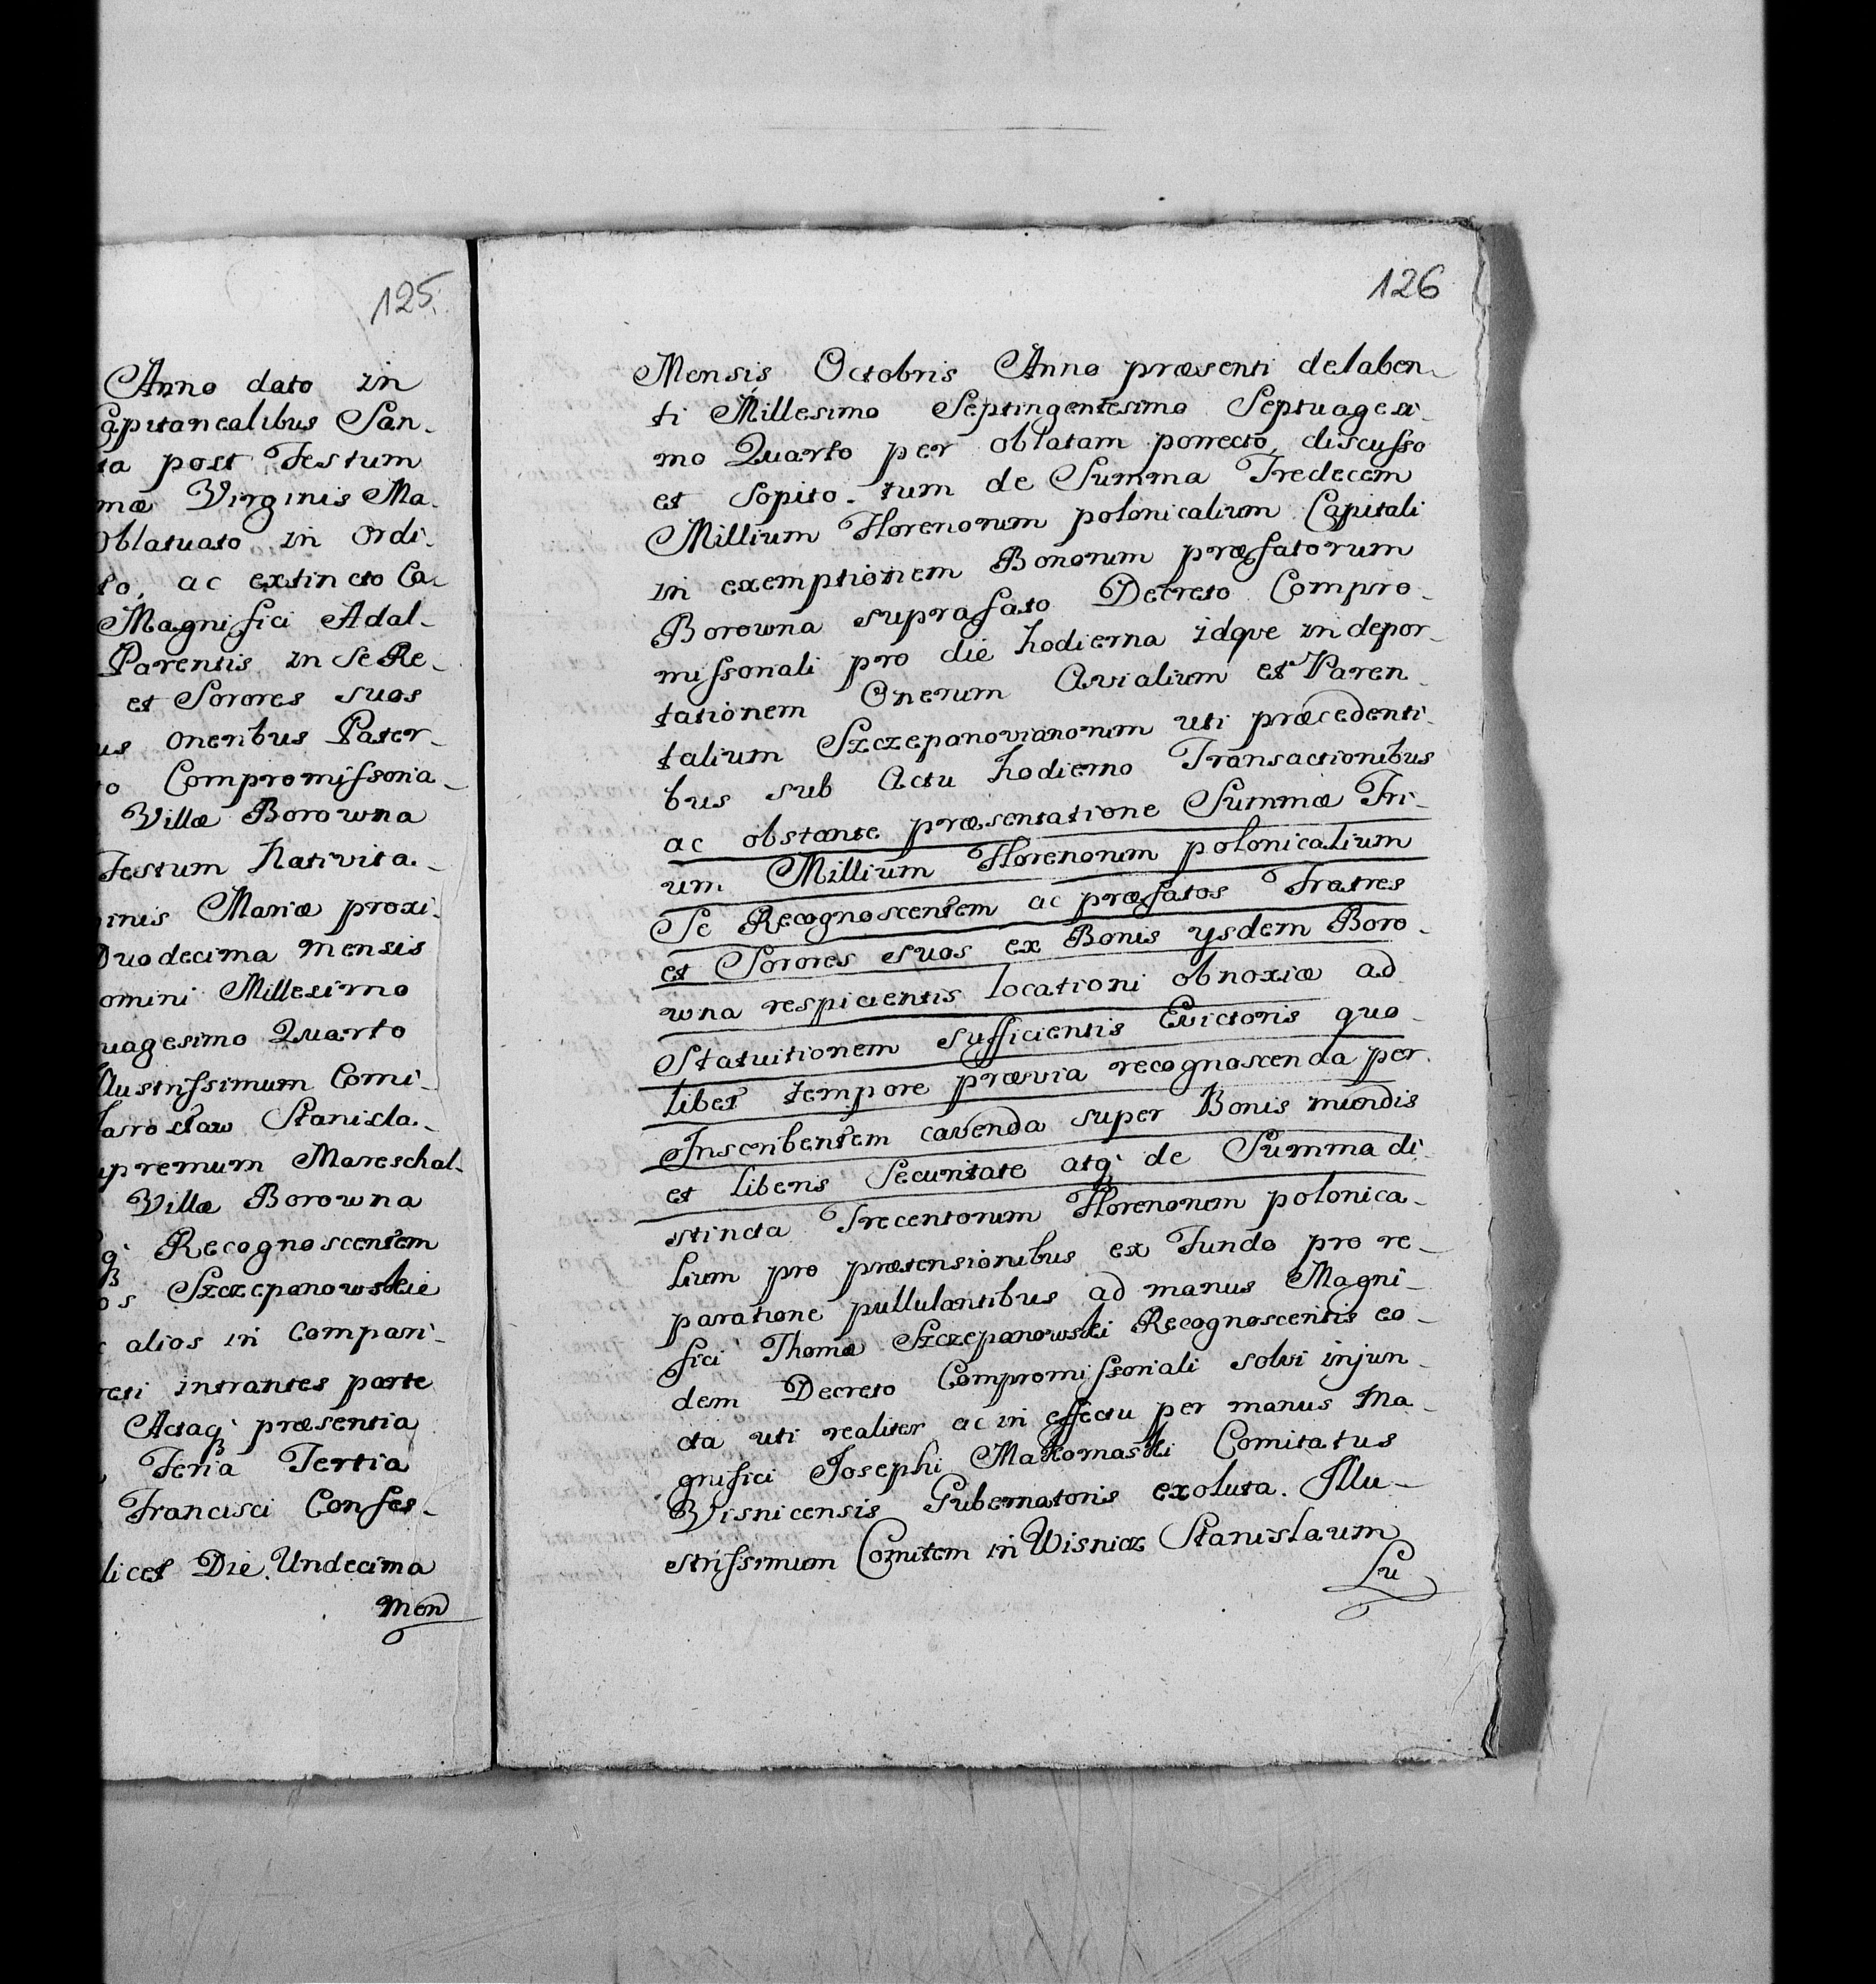 125.
Anno dato in
Capitanealibus San-
ta post Festum
mæ Virginis Ma-
Oblatuato in Ordi-
to, ac extincto Ca-
Magnifici Adal-
Parentis in se Re-
et Sorores suos
us Oneribus Pater-
to Compromissoria-
Villæ Borowna
Festum Nativita-
inis Mariæ proxi-
Duodecima Mensis
omini Millesimo
uagesimo Quarto
llustrissimum Comi-
Jarosław Stanisla-
upremum Mareschal-
Villæ Borowna
q Recognoscentem
os Szczepanowskie
alios in Compari-
reti intrantes parte
Actaq præsentia
Feria Tertia
Francisci Confes-
licet Die Undecima
Men
126
Mensis Octobris Anno præsenti delaben-
ti Millesimo Septingentesimo Septuagesi-
mo Quarto per oblatam porrecto, discusso
et Sopito. tum de Summa Tredecem
Millium Florenorum polonicalium Capitali
in exemptionem Bonorum præfatorum
Borowna suprafato Decreto Compro-
missoriali pro die hodierna idqve in depor-
tationem Onerum Avialium et Paren-
talium Szczepanovianorum uti præcedenti-
bus sub Actu hodierno Transactionibus
ac obstante præsentatione Summæ Tri-
um Millium Florenorum polonicalium
Se Recognoscentem ac præfatos Fratres
et Sorores suos ex Bonis ysdem Boro-
wna respicientis locationi obnoxiæ ad
Statuitionem sufficientis Evictoris quo-
libet tempore prævia recognoscenda per
Inscribentem cavenda super Bonis mundis
et liberis Securitate atq de Summa di-
stincta Trecentorum Florenorum polonica-
lium pro prætensionibus ex Fundo pro re-
paratione pullulantibus ad manus Magni-
fici Thomæ Szczepanowski Recognoscentis eo-
dem Decreto Compromissoriali solvi injun-
cta uti realiter ac in effectu per manus Ma-
gnifici Josephi Makomaski Comitatus
Visnicensis Gubernatoris exoluta. Illu-
strissimum Comitem in Wisnicz Stanislaum
Lu